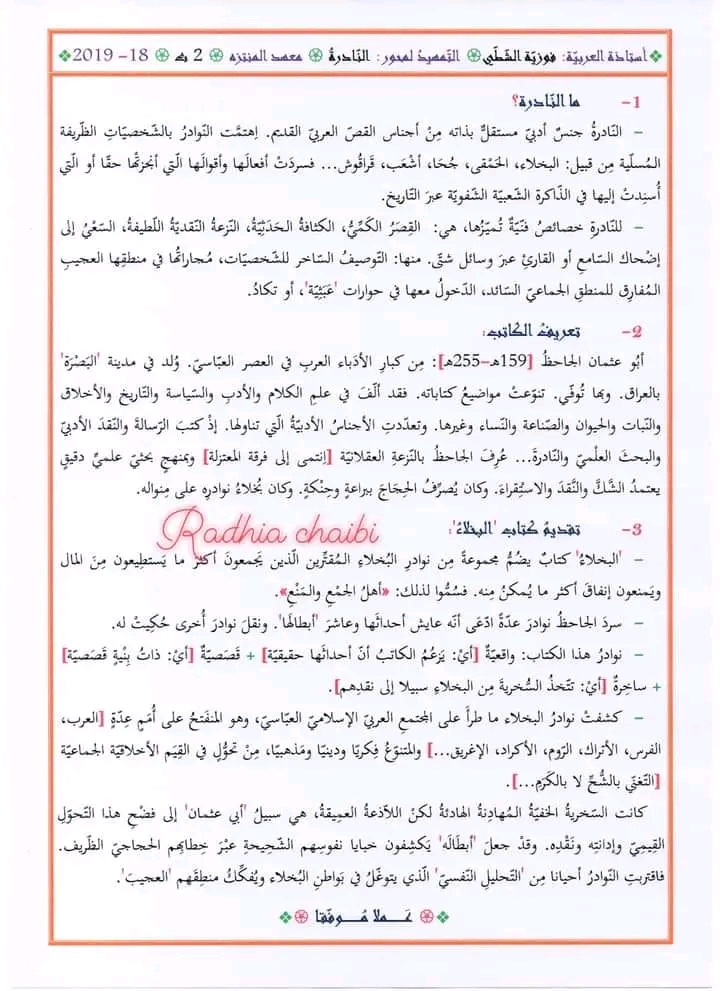 ❖ أستاذة العربيّة: فوزيّة الشّطّي ֍ التّمهيدُ لمحور: النّادرةُ ֍ معهد المنتزه ֍ 2 ث ֍ 18- 2019 ❖
1- ما النّادرة؟
– النّادرةُ جنسٌ أدبيٌّ مستقلٌّ بذاته مِنْ أجناس القصّ العربيّ القديم. اِهتمّت النّوادرُ بالشّخصيّاتِ الظّريفة
المُسلّية مِن قبيل: البخلاء، الحَمْقى، جُحَا، أشْعَب، قَراقُوش... فسردَتْ أفعالَها وأقوالَها الّتي أنجزتْها حقّا أو الّتي
أُسنِدتْ إليها في الذّاكرة الشّعبيّة الشّفويّة عبرَ التّاريخ.
– للنّادرةِ خصائصُ فنّيّةٌ تُميّزُها، هي: القِصَرُ الكَمِّيُّ، الكثافةُ الـحَدَثِيّةُ، النّزعةُ النّقديّةُ اللّطيفةُ، السّعْيُ إلى
إضْحاك السّامعِ أو القارئِ عبرَ وسائل شتّى. منها: التّوصيفُ السّاخر للشّخصيّات، مُجاراتُها في منطقِها العجيبِ
المُفارِق للمنطقِ الجماعيّ السّائد، الدّخولُ معها في حوارات 'عَبَثِيّة'، أو تكادُ.
2- تعريفُ الكاتب:
أبُو عثمان الجاحظُ [159هـ–255هـ]: مِن كبارِ الأدَباء العربِ في العصر العبّاسيّ. وُلد في مدينة 'البَصْرَة'
بالعراق. وبها تُوفّي. تنوّعتْ مواضيعُ كتاباته. فقد ألّفَ في علمِ الكلام والأدبِ والسّياسة والتّاريخ والأخلاق
والنّبات والحيوان والصّناعة والنّساء وغيرها. وتعدّدتِ الأجناسُ الأدبيّةُ الّتي تناولها. إذْ كتبَ الرّسالةَ والنّقدَ الأدبيَّ
والبحثَ العلْميَّ والنّادرةَ... عُرِفَ الجاحظُ بالنّزعةِ العقلانيّة [اِنتمى إلى فرقة المعتزلة] وبمنهجٍ بحثيٍّ علميٍّ دقيقٍ
يعتمدُ الشّكَّ والنّقدَ والاستِقراءَ. وكان يُصرِّفُ الحِجَاجَ ببراعةٍ وحِنْكةٍ. وكان بُخلاءُ نوادرِه على مِنواله.
3- تقديمُ كتاب 'البخلاءُ':
Radhia chaibi
– 'البخلاءُ' كتابٌ يضُمُّ مجموعةً مِن نوادرِ البُخلاءِ المُقتِّرين الّذين يَجمعونَ أكثرَ ما يَستطِيعون مِنَ المال
ويَمنعون إنفاقَ أكثر ما يُمكنُ مِنه. فسُمُّوا لذلك: «أهلُ الجمْعِ والمَنْعِ».
– سردَ الجاحظُ نوادرَ عدّةً ادّعَى أنّه عايش أحداثَها وعاشرَ 'أبطالَها'. ونقلَ نوادرَ أُخرى حُكِيتْ له.
– نوادرُ هذا الكتاب: واقعيّةٌ [أيْ: يَزعُمُ الكاتبُ أنّ أحداثَها حقيقيّة] + قَصَصيّةٌ [أيْ: ذاتُ بِنْيةٍ قَصَصيّة]
+ ساخِرةٌ [أيْ: تتّخذُ السُّخريةَ مِن البخلاءِ سبيلا إلى نقدِهم].
– كشفتْ نوادرُ البخلاء ما طرأ على المجتمعِ العربيّ الإسلاميّ العبّاسيّ، وهو المنفتحُ على أُمَمٍ عِدّةٍ [العرب،
الفرس، الأتراك، الرّوم، الأكراد، الإغريق...] والمتنوّعُ فِكريّا ودينيّا ومَذهبيّا، مِنْ تحوُّلٍ في القِيَمِ الأخلاقيّة الجماعيّة
[التّغنّي بالشُّحِّ لا بالكَرَمِ...].
كانت السّخريةُ الخفيّةُ المُهادِنةُ الهادئة لكنْ اللاّذعةُ العميقةُ، هي سبيلُ 'أبي عثمان' إلى فضْحِ هذا التّحوّلِ
القِيمِيّ وإدانتِه ونَقْدِه. وقدْ جعلَ 'أبطَالَه' يَكشِفون خبايا نفوسِهم الشّحِيحةِ عبْرَ خِطابِهم الحجاجيّ الظّريف.
فاقتربتِ النّوادرُ أحيانا مِن 'التّحليلِ النّفسيّ' الّذي يتوغّلُ في بَواطنِ البُخلاء ويُفكِّكُ منطِقَهم 'العجيبَ'.
❖ ֍ عَـمـلا مُـوفّـقا ֍ ❖